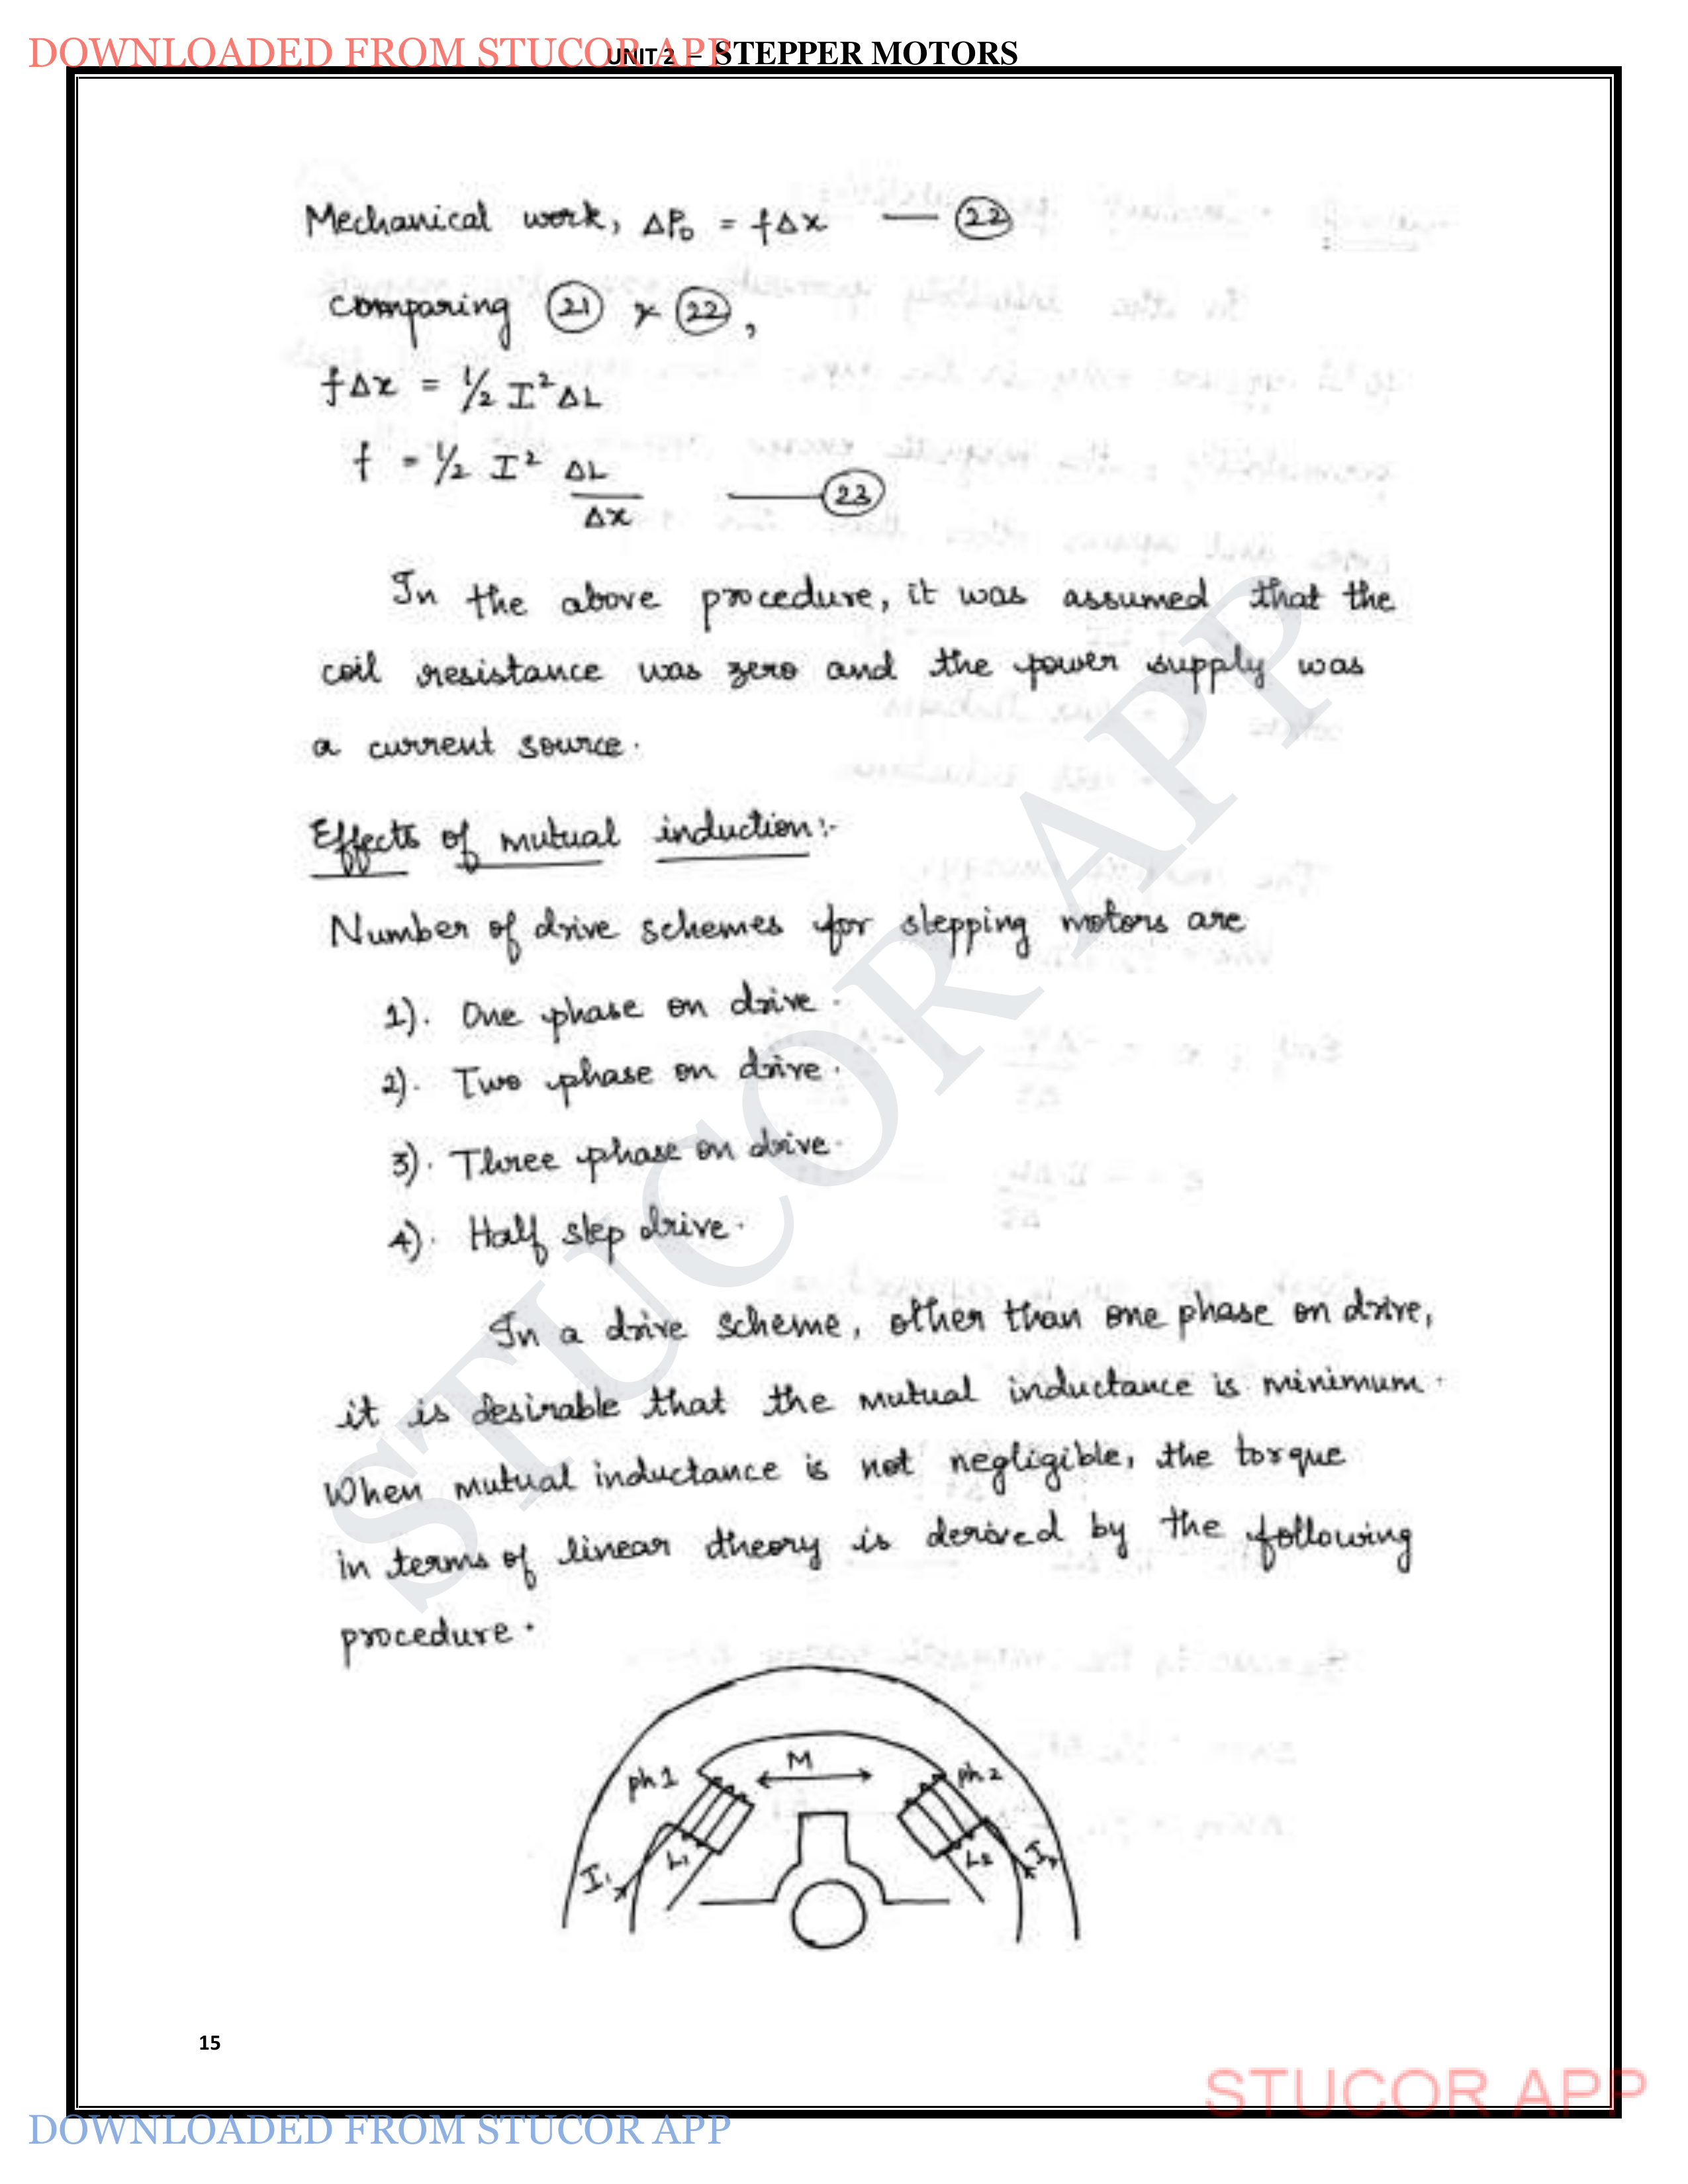 DOWNLOADED FROM STUCOR APP
UNIT 2 – STEPPER MOTORS
Mechanical work, ΔP₀ = fΔx — (22)
comparing (21) & (22),
fΔx = 1/2 I² ΔL
f = 1/2 I² ΔL/Δx — (23)
In the above procedure, it was assumed that the
coil resistance was zero and the power supply was
a current source.
Effects of mutual induction:-
Number of drive schemes for stepping motors are
1). One phase on drive.
2). Two phase on drive.
3). Three phase on drive.
4). Half step drive.
In a drive scheme, other than one phase on drive,
it is desirable that the mutual inductance is minimum.
When mutual inductance is not negligible, the torque
in terms of linear theory is derived by the following
procedure.
ph 1 M ph 2
I₁ L₁ L₂ I₂
STUCOR APP
15
STUCOR APP
DOWNLOADED FROM STUCOR APP